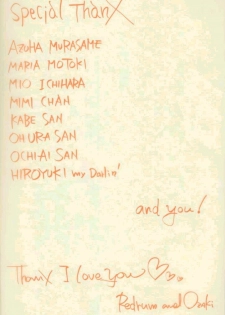 Special Thanx
AZUHA MURASAME
MARIA MOTOKI
MIO ICHIHARA
MIMI CHAN
KABE SAN
OHURA SAN
OCHIAI SAN
HIROYUKI my Darlin'
and you!
Thanx I love you
Redrum and